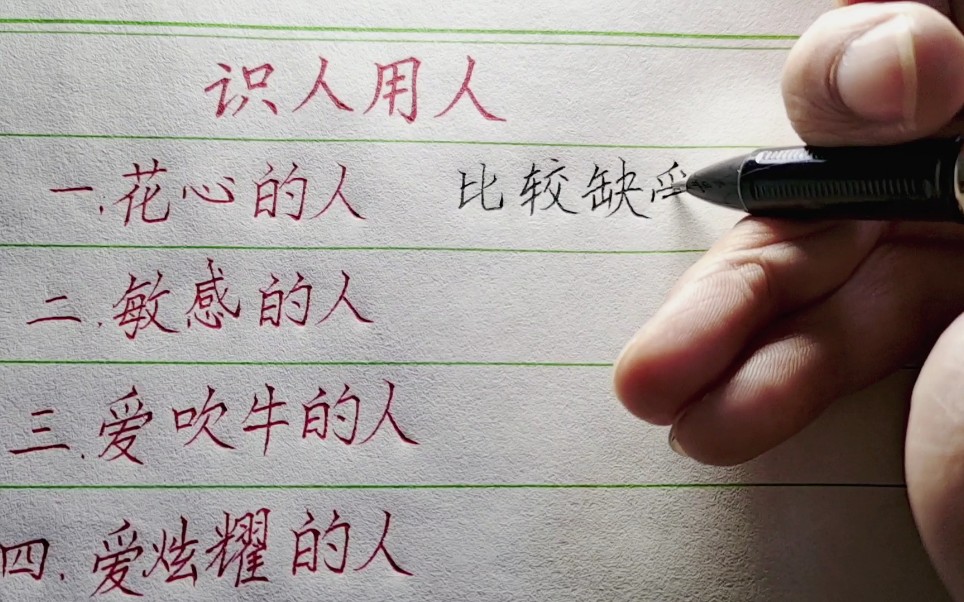 识人用人
一.花心的人 比较缺
二.敏感的人
三.爱吹牛的人
四.爱炫耀的人